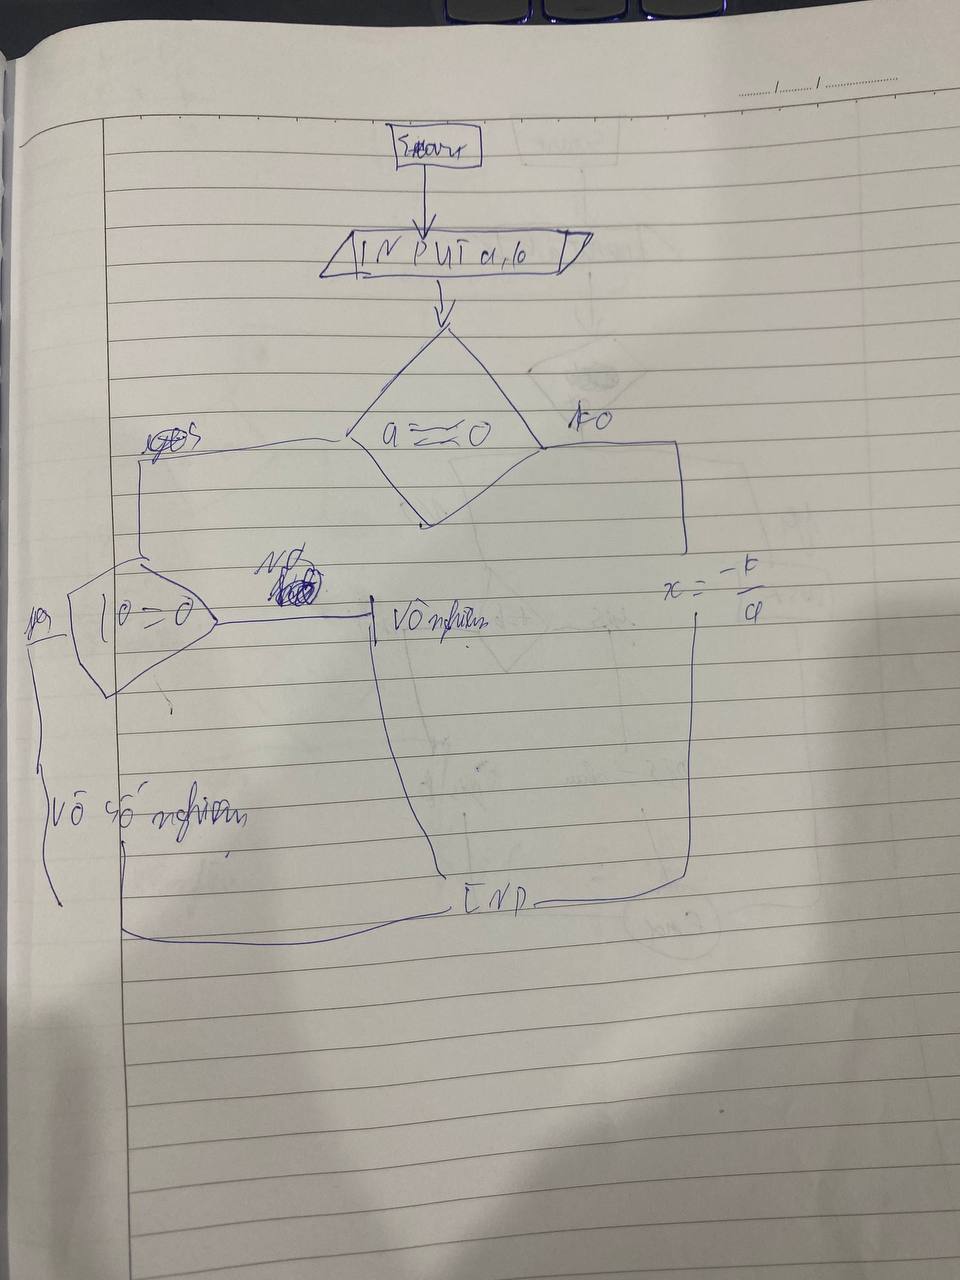 Start
INPUT a, b
a == 0
NO
yes
NO
b = 0
x = -b/a
Vô nghiệm
Vô số nghiệm
END